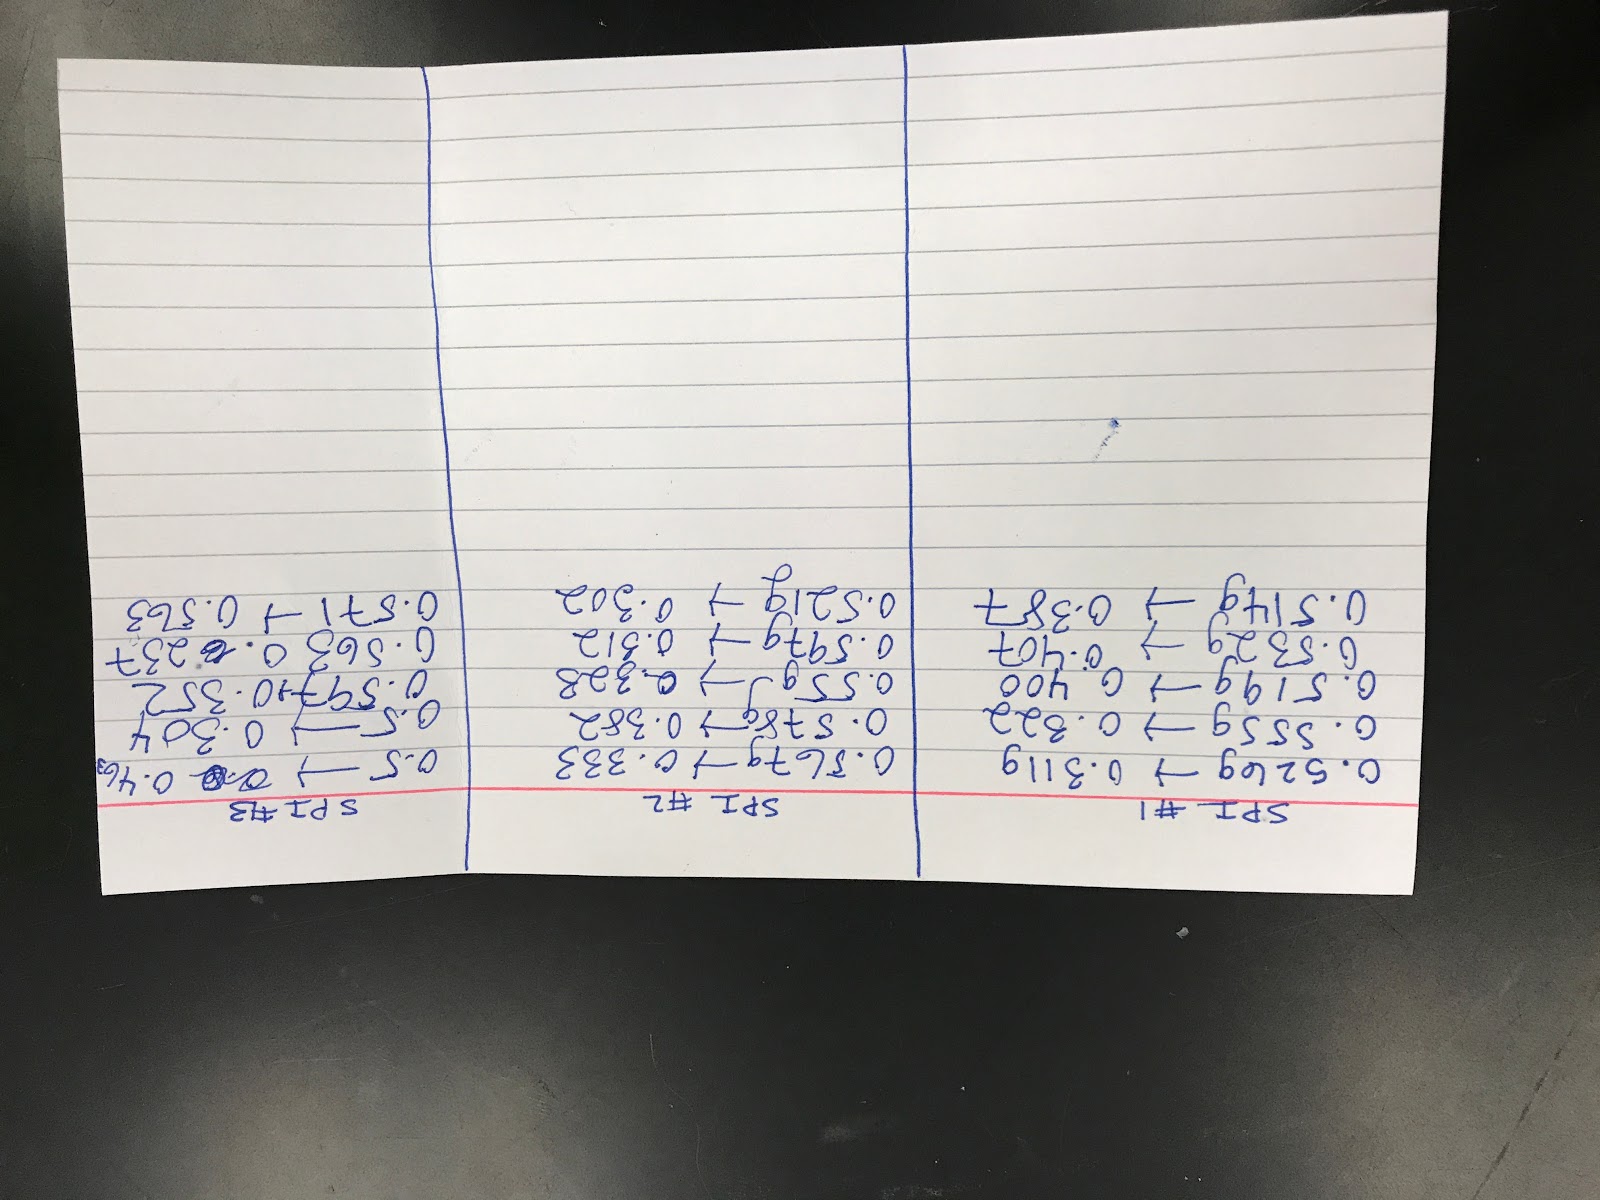 SPI #1
0.526g → 0.311g
0.555g → 0.322
0.519g → 0.400
0.532g → 0.407
0.514g → 0.387
SPI #2
0.567g → 0.333
0.578g → 0.382
0.55g → 0.328
0.597g → 0.312
0.521g → 0.302
g
SPI #3
0.5 → 0.463
0.5 → 0.304
0.597→0.352
0.563 0.237
0.571 → 0.563